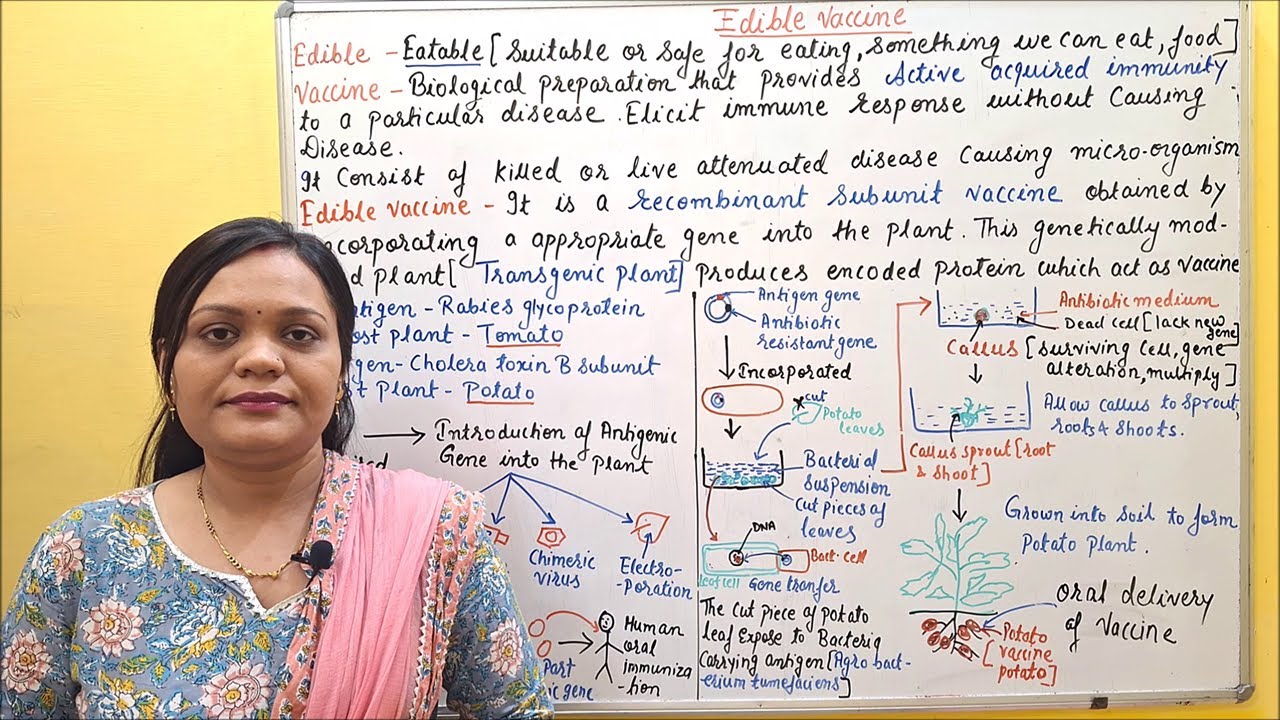 Edible Vaccine
Edible - Eatable [Suitable or safe for eating, something we can eat, food]
Vaccine - Biological preparation that provides Active acquired immunity
to a particular disease. Elicit immune response without causing
Disease.
It consist of killed or live attenuated disease causing micro-organism
Edible vaccine - It is a recombinant subunit vaccine obtained by
ncorporating a appropriate gene into the plant. This genetically mod-
d plant [Transgenic plant] produces encoded protein which act as vaccine
tigen - Rabies glycoprotein
ost plant - Tomato
gen - Cholera toxin B subunit
t Plant - Potato
Introduction of Antigenic
Gene into the plant
Chimeric
virus
Electro-
-poration
Part
ic gene
Human
oral
immuniza
-tion
Antigen gene
Antibiotic
resistant gene
Incorporated
cut
Potato
leaves
Bacterial
suspension
Cut pieces of
leaves
DNA
Bact. cell
Leaf cell
Gene tranfer
The cut piece of potato
leaf Expose to Bacteria
Carrying antigen [Agro bact-
erium tumefaciens]
Antibiotic medium
Dead cell [lack new
gene]
Callus [surviving cell, gene
alteration, multiply]
Allow callus to sprout,
roots & shoots.
Callus sprout [root
& shoot]
Grown into soil to form
Potato plant.
oral delivery
of vaccine
Potato
[vaccine
potato]